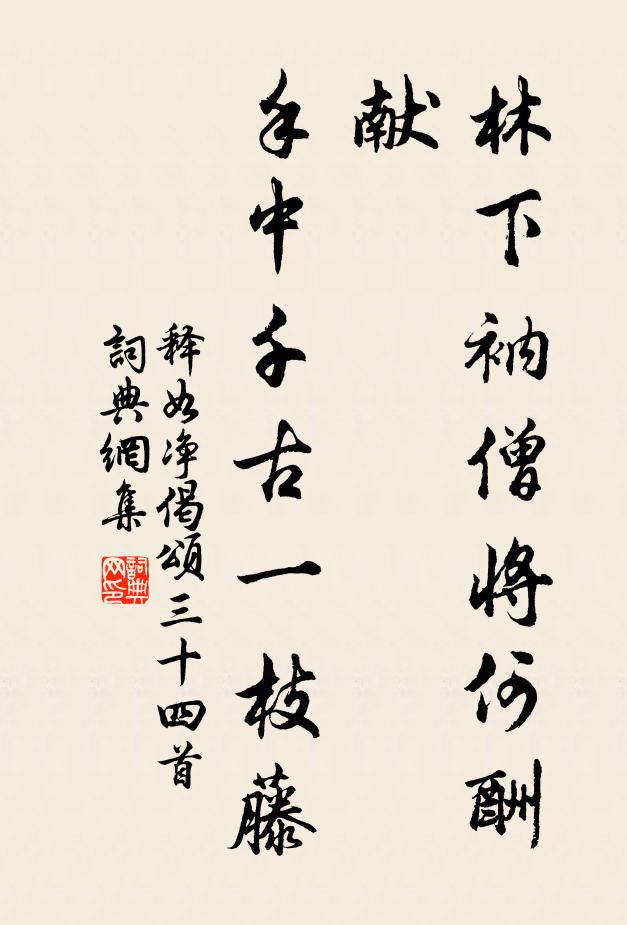 林下衲僧将何酬
献
手中千古一枝藤
释如净偈颂三十四首
詞典網集
詞典网印